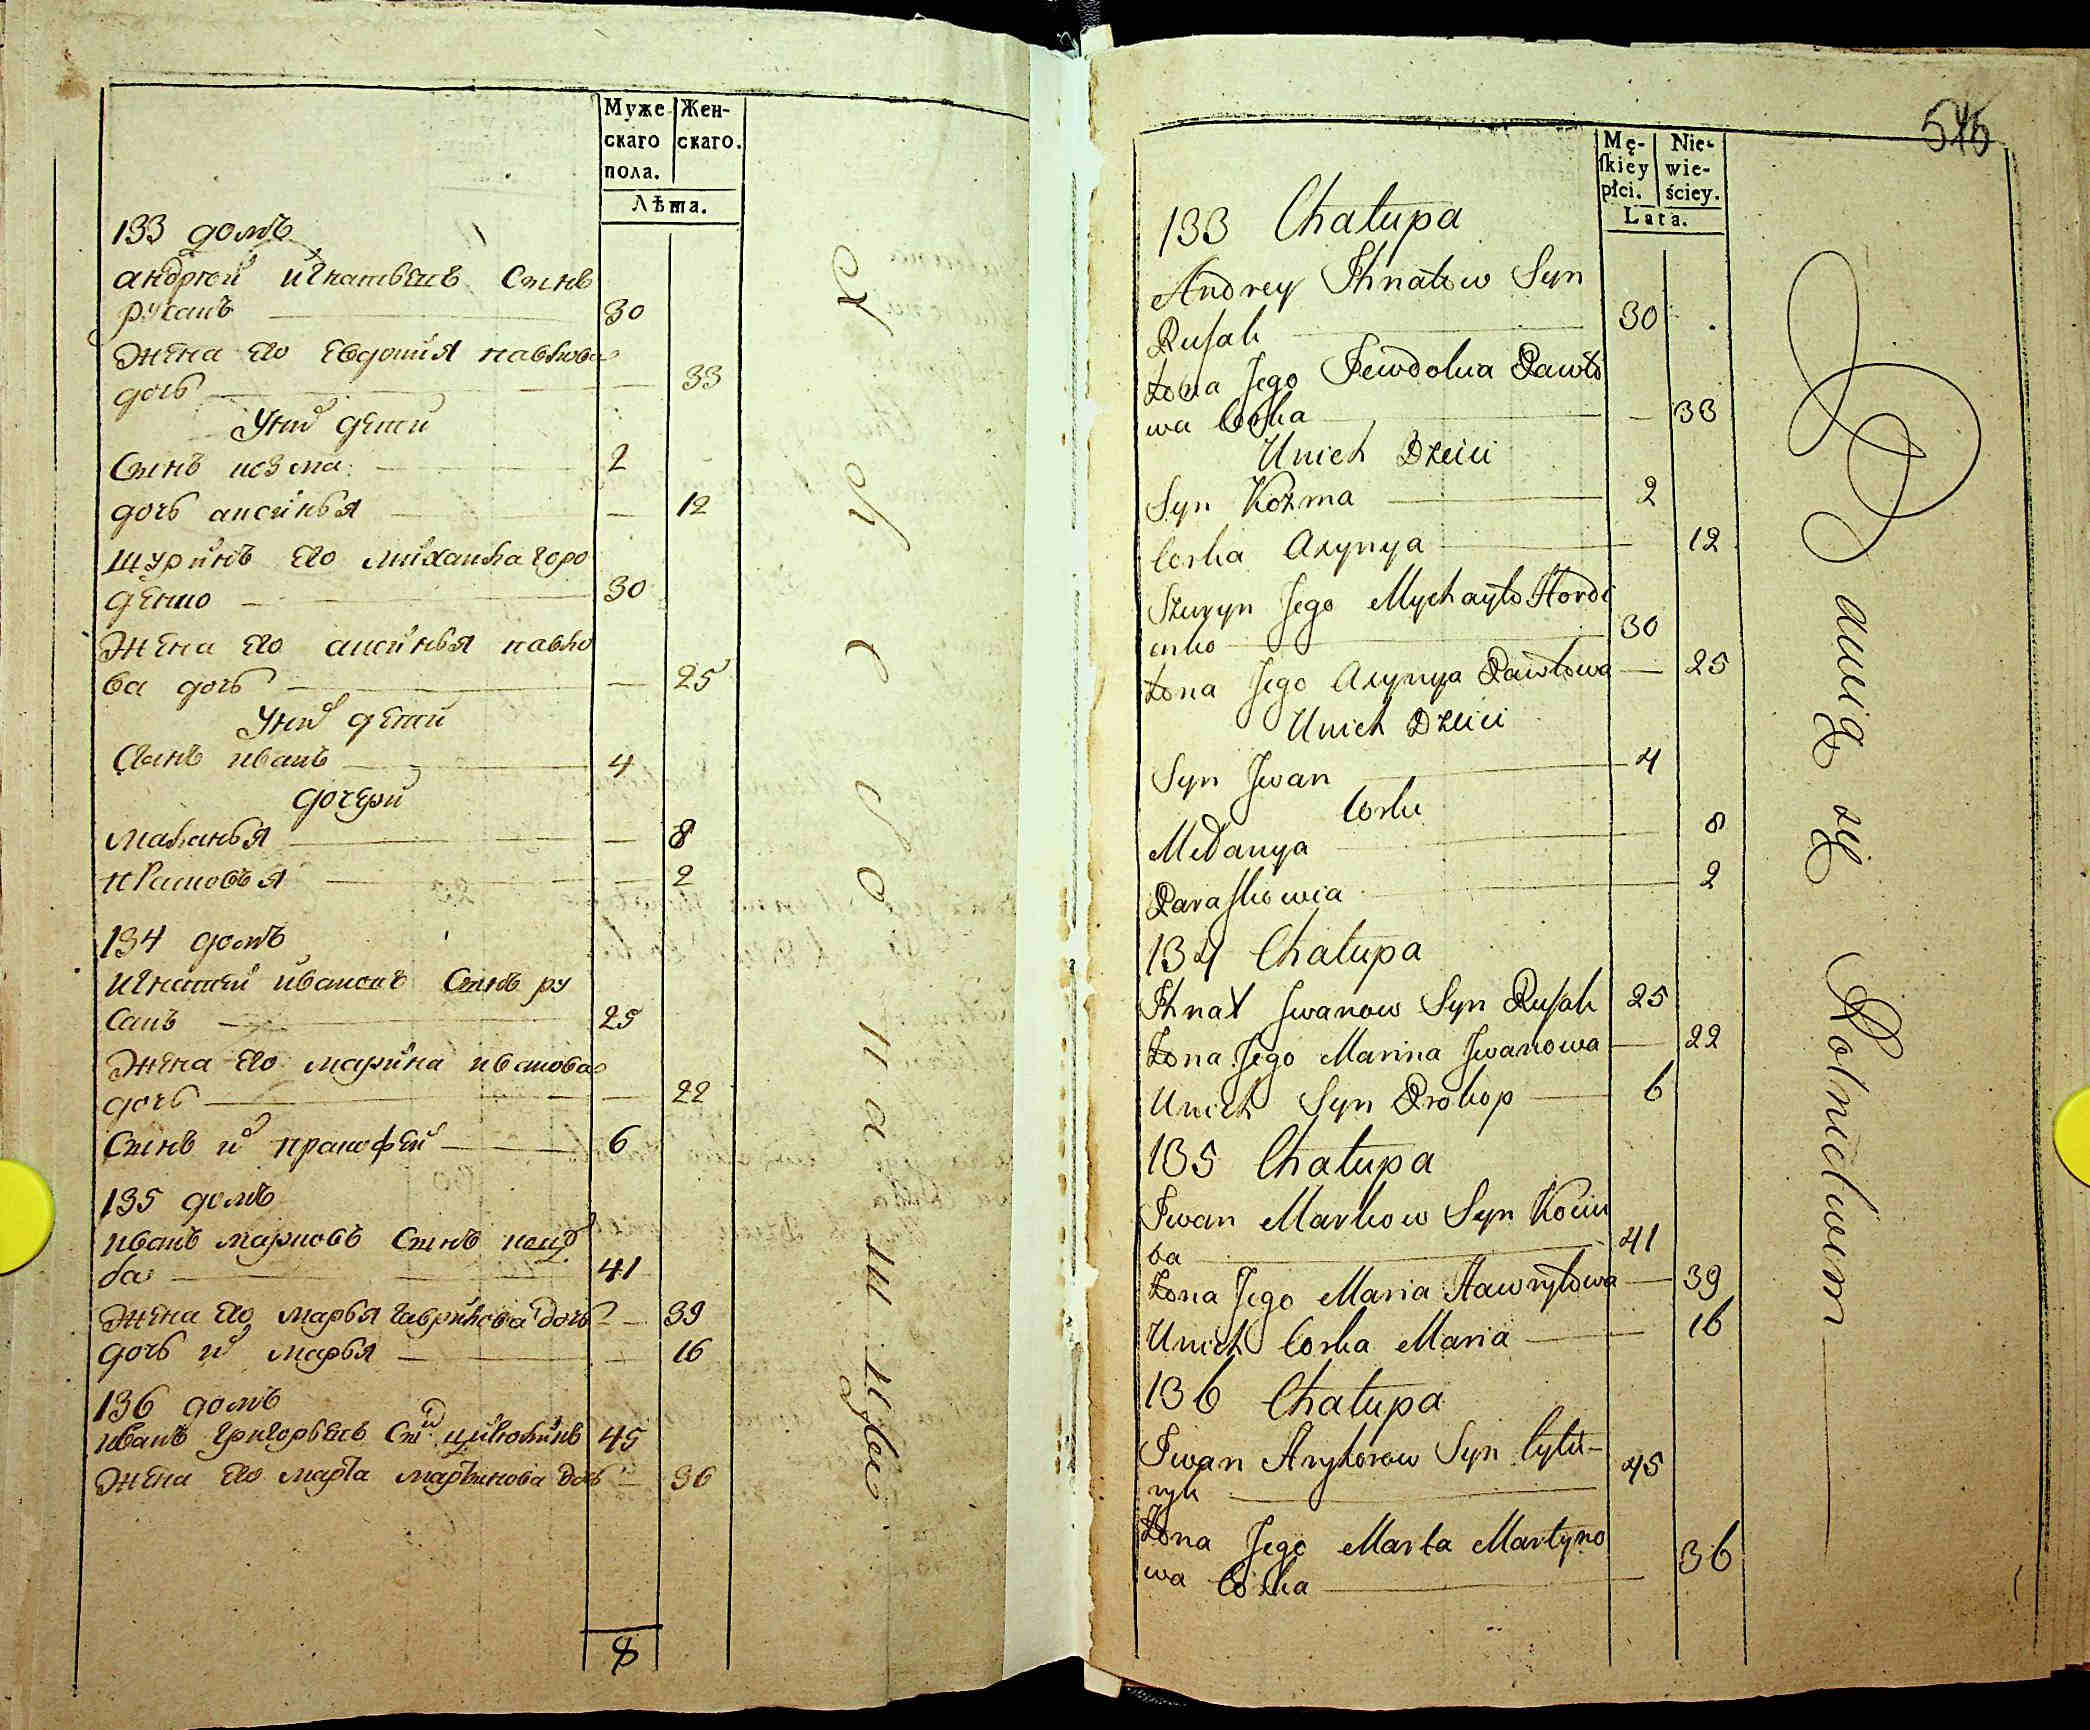 Муже Жен-
скаго скаго.
пола.
Лѣта.
133 домъ
андрѣй игнатьевъ Сынъ
русакъ 30
Жена его Евдокия павлова
дочь 33
У них дети
Сынъ козма 2
дочь аксинья 12
шуринъ его михайла горо
денко 30
Жена его аксинья павло
ва дочь 25
У них дети
Сынъ иванъ 4
дочери
маланья 8
2
134 домъ
игнатей ивановъ Сынъ ру
сакъ 25
Жена его марина иванова
дочь 22
Сынъ их пракофей 6
135 домъ
иванъ марковъ Сынъ коцю
ба 41
Жена его марья гаврилова дочь 39
дочь их марья 16
136 домъ
иванъ григорьевъ 45
Жена его марта мартинова дочь 36
8
545
Mę- Nie-
ſkiey wie-
płci. ściey.
Lata.
133 Chałupa
Andrey Ihnatow Syn
Ruſak 30
Żona Jego Jewdokia Pawło
wa Corka 33
Unich Dzieci
Syn Kozma 2
Corka Axynya 12
Szuryn Jego Mychayło Horde
inko 30
Żona Jego Axynya Pawłowa 25
Unich Dzieci
Syn Jwan 4
Corki
Mełanya 8
Paraſkowia 2
134 Chałupa
Ihnat Jwanow Syn Ruſak 25
Żona Jego Marina Jwanowa 22
Unich Syn Prokop 6
135 Chałupa
Iwan Markow Syn Kociu
ba 41
Żona Jego Maria Hawryłowa 39
Unich Corka Maria 16
136 Chałupa
Iwan Hryhorow Syn Cylu-
ryk 45
Żona Jego Marta Martyno
wa Corka 36
Bawią się Rolnictwem